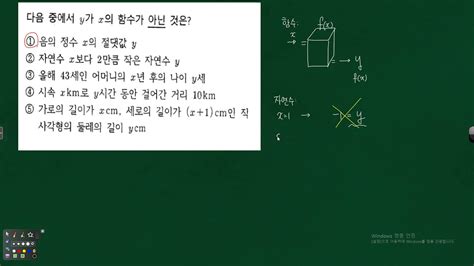 다음 중에서 y가 x의 함수가 아닌 것은?
① 음의 정수 x의 절댓값 y
② 자연수 x보다 2만큼 작은 자연수 y
③ 올해 43세인 어머니의 x년 후의 나이 y세
④ 시속 xkm로 y시간 동안 걸어간 거리 10km
⑤ 가로의 길이가 xcm, 세로의 길이가 (x+1)cm인 직
사각형의 둘레의 길이 ycm
함수.
f(x)
x →
→ y
f(x)
자연수.
x=1 → -1 = y
Windows 정품 인증
[설정]으로 이동하여 Windows를 정품 인증합니다.